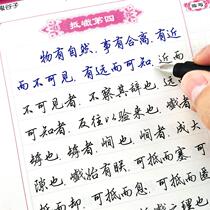 鬼谷子
抵巇第四
物有自然，事有合离。有近
而不可见，有远而可知。近而
不可见者，不察其辞也；远
可知者，反往以验来也。巇
者，罅也。罅者，涧也。涧者，成大
隙也。巇始有朕，可抵而塞，可
抵而却，可抵而息，可抵而匿